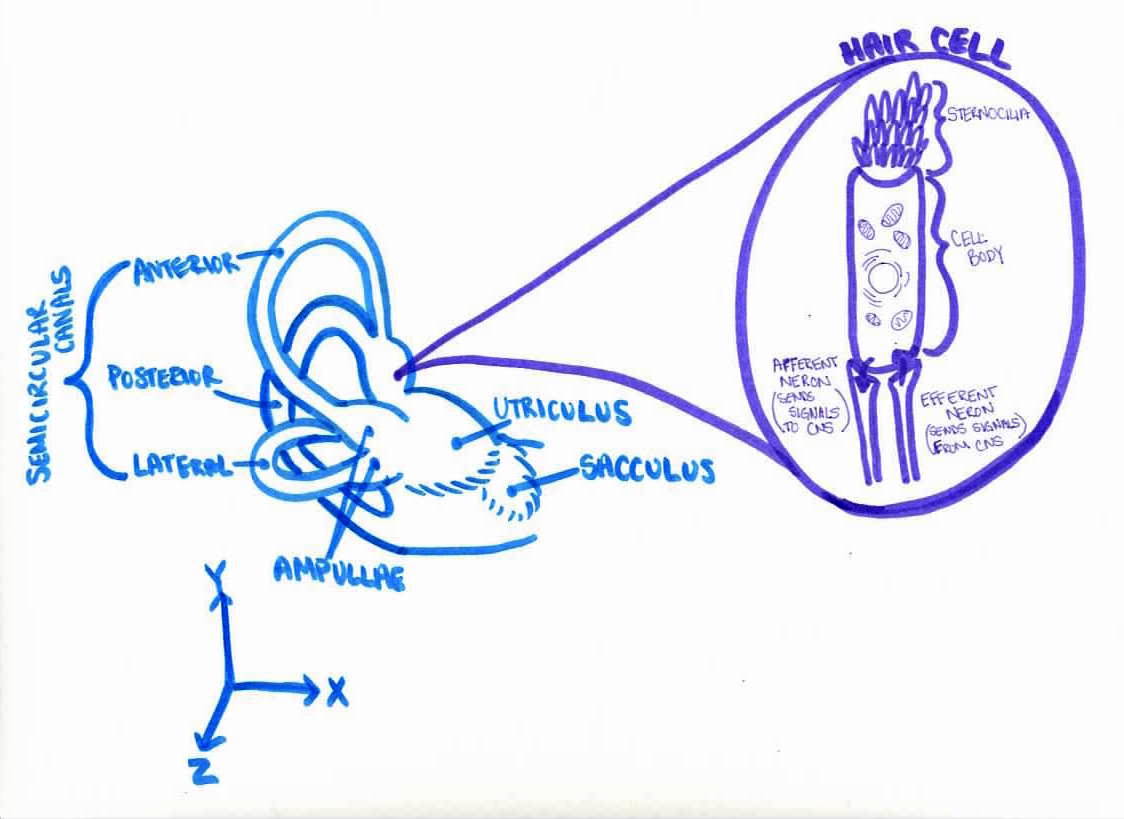 HAIR CELL
STERNOCILIA
CELL
BODY
AFFERENT
NERON
(SENDS
SIGNALS
TO CNS)
EFFERENT
NERON
(SENDS SIGNALS)
FROM CNS
SEMICIRCULAR
CANALS
ANTERIOR
POSTERIOR
LATERAL
UTRICULUS
SACCULUS
AMPULLAE
Y
X
Z